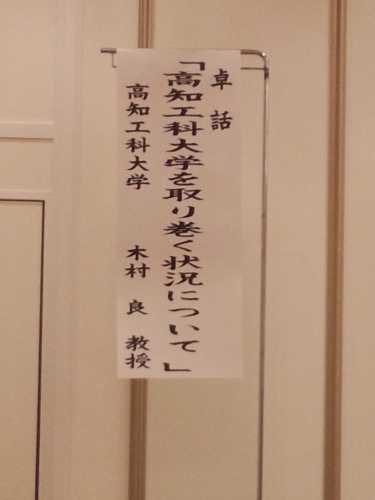 卓話
「高知工科大学を取り巻く状況について」
高知工科大学 木村 良 教授